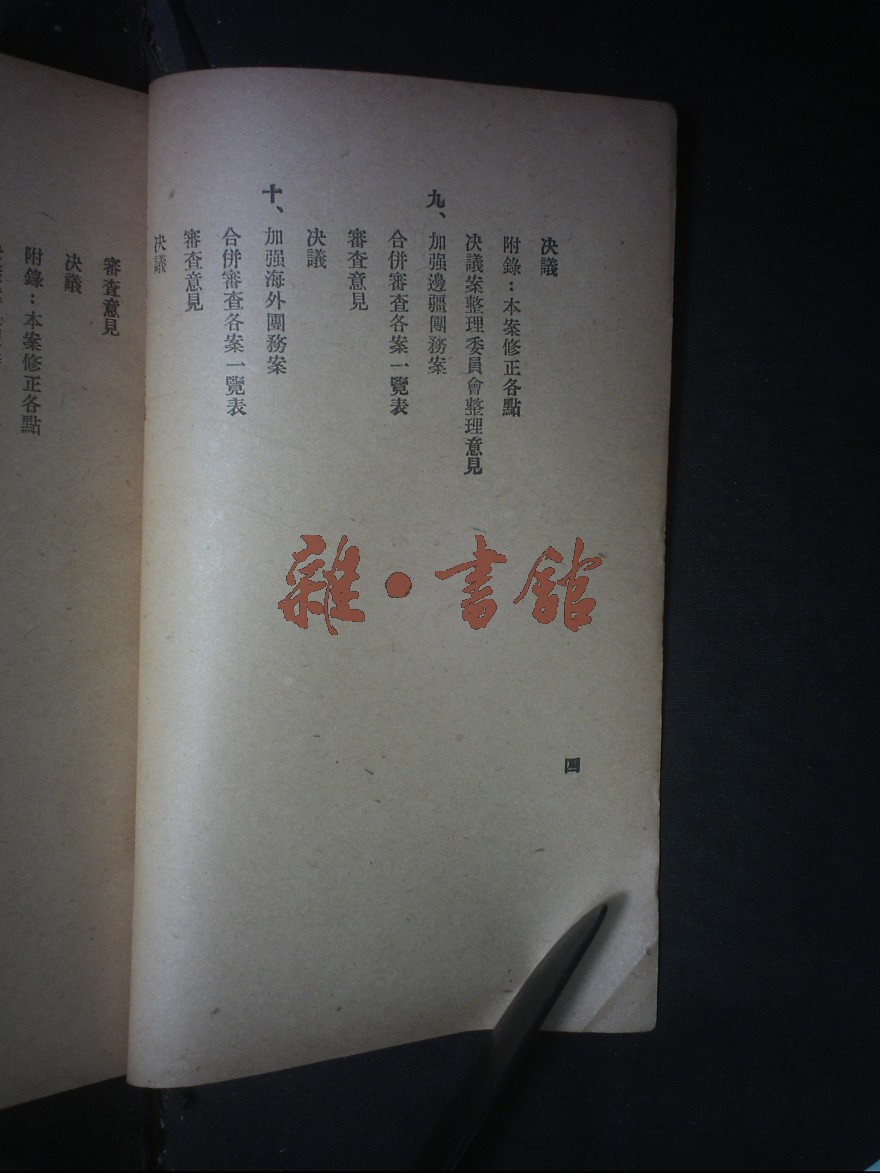 决議
附錄：本案修正各點
决議案整理委員會整理意見
九、加强邊疆團務案
合併審查各案一覽表
審查意見
决議
十、加强海外團務案
合併審查各案一覽表
審查意見
决議
四
審查意見
决議
附錄：本案修正各點
雜•書館